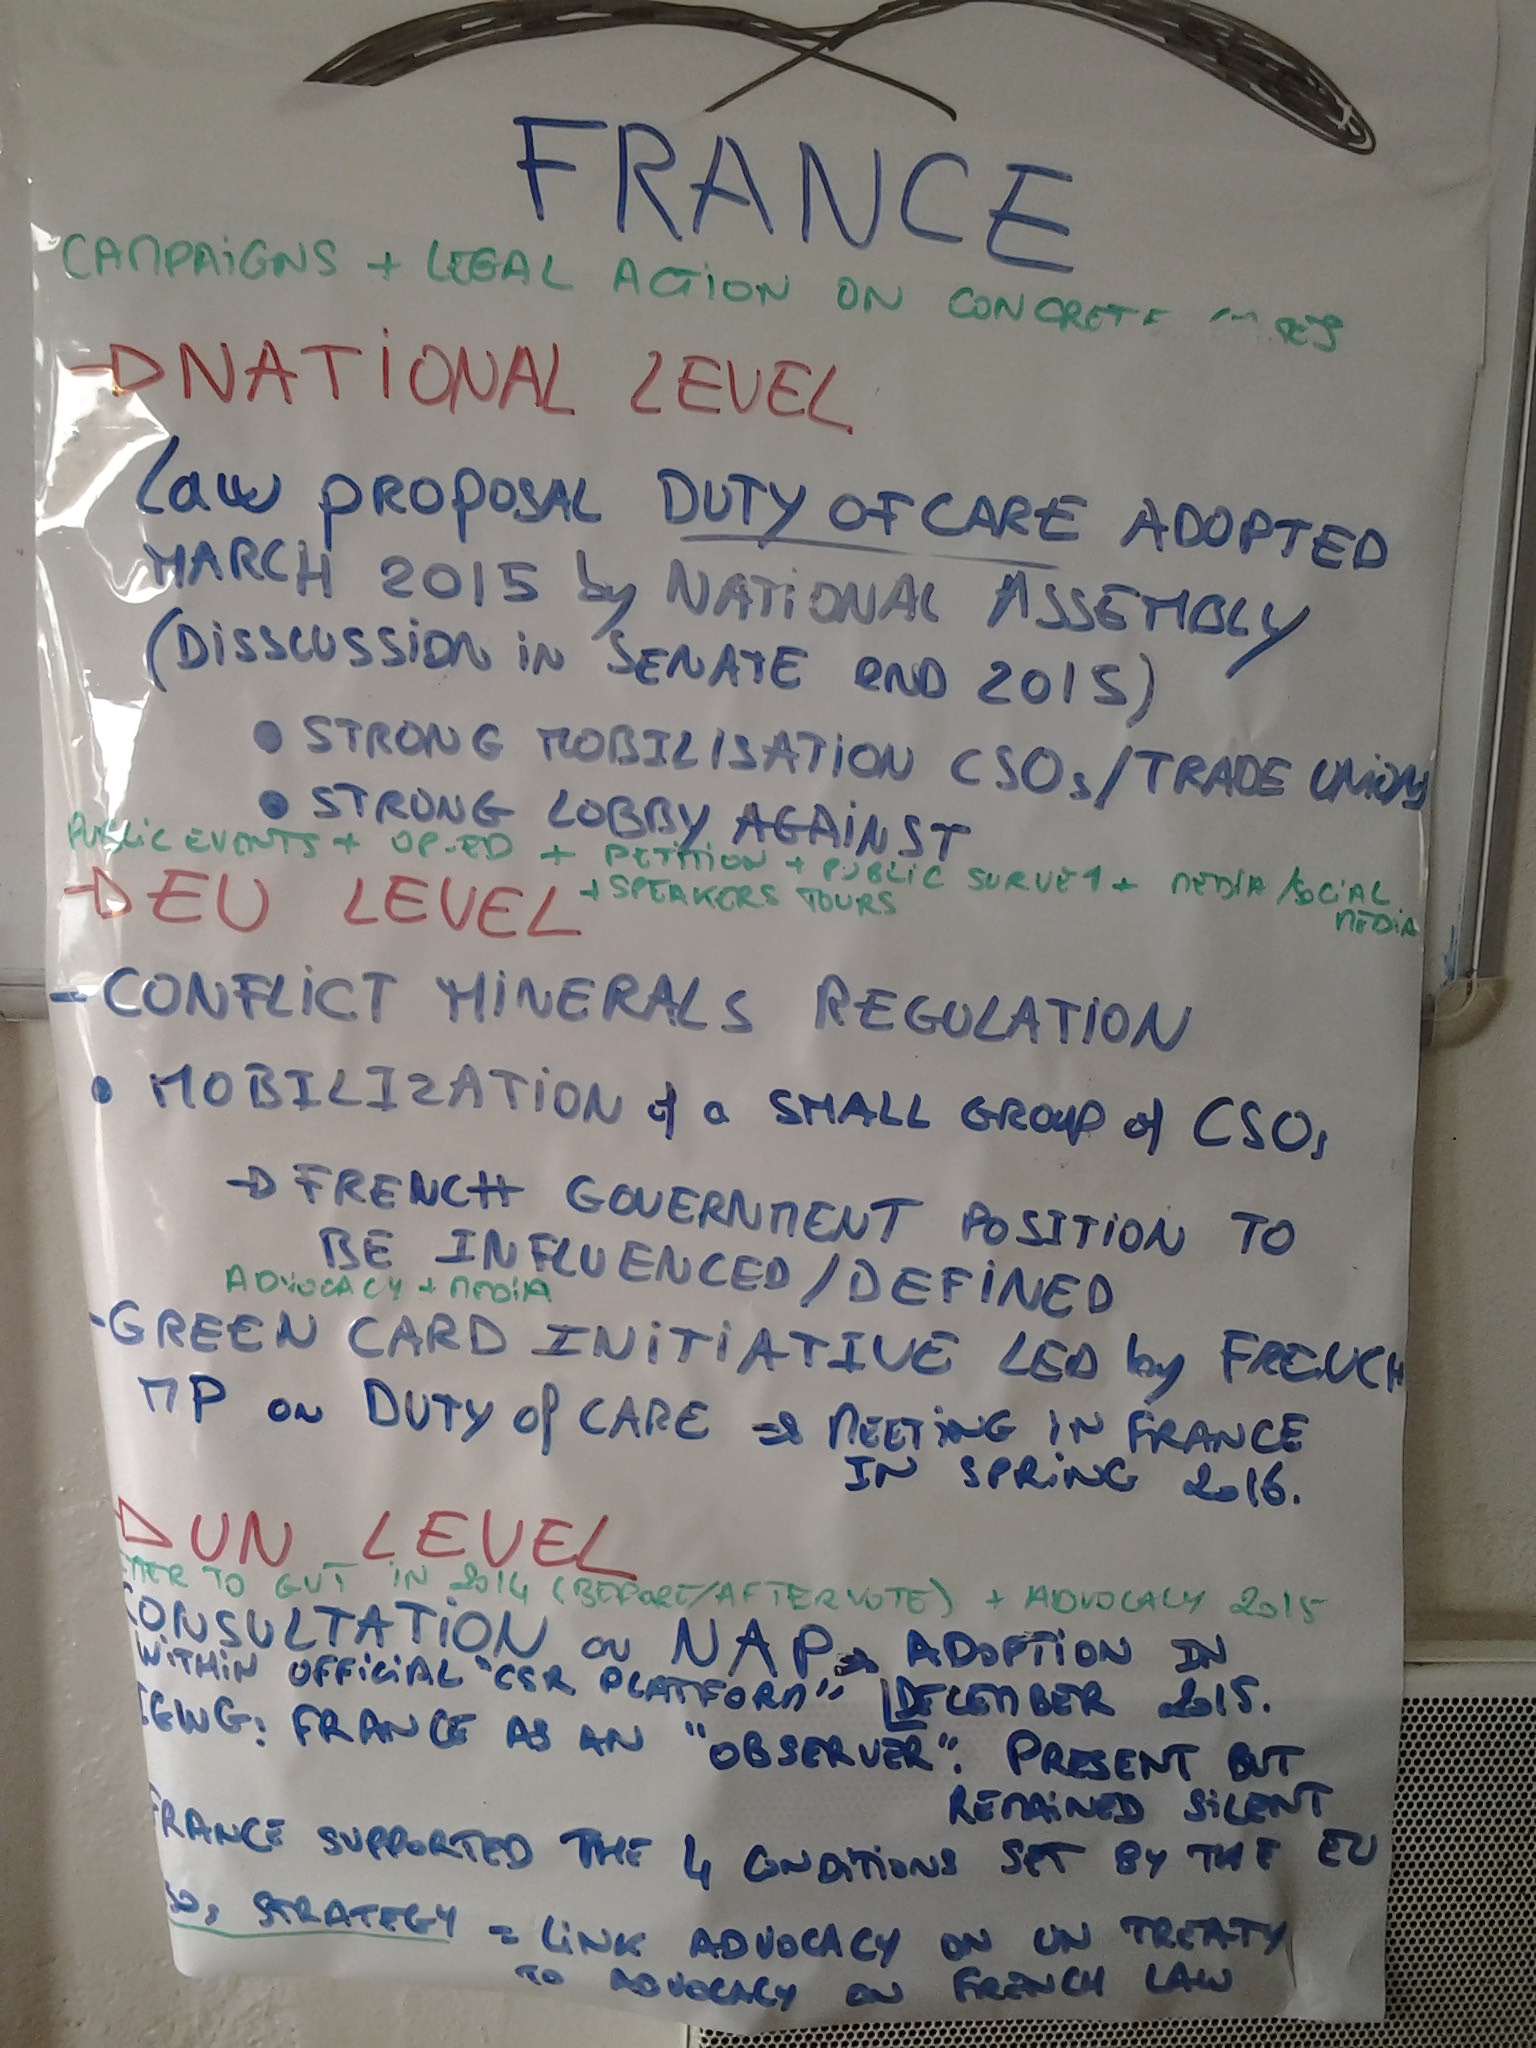 FRANCE
CAMPAIGNS + LEGAL ACTION ON CONCRETE
NATIONAL LEVEL
Law proposal DUTY OF CARE ADOPTED
MARCH 2015 by NATIONAL ASSEMBLY
(DISSCUSSION in SENATE END 2015)
• STRONG MOBILISATION CSOs/TRADE UNIONS
• STRONG LOBBY AGAINST
PUBLIC EVENTS + OP-ED + PETITION + PUBLIC SURVEY + MEDIA/SOCIAL
MEDIA
+ SPEAKERS TOURS
EU LEVEL
- CONFLICT MINERALS REGULATION
• MOBILIZATION of a SMALL GROUP of CSOs
→ FRENCH GOVERNMENT POSITION TO
BE INFLUENCED/DEFINED
ADVOCACY + MEDIA
- GREEN CARD INITIATIVE LED by FRENCH
MP on DUTY of CARE → MEETING IN FRANCE
IN SPRING 2016.
UN LEVEL
TO GVT IN 2014 (BEFORE/AFTER VOTE) + ADVOCACY 2015
CONSULTATION on NAP → ADOPTION IN
WITHIN OFFICIAL "CSR PLATFORM" DECEMBER 2015.
IGWG: FRANCE AS AN "OBSERVER". PRESENT BUT
REMAINED SILENT
FRANCE SUPPORTED THE 4 CONDITIONS SET BY THE EU
SOs STRATEGY = LINK ADVOCACY ON UN TREATY
TO ADVOCACY ON FRENCH LAW